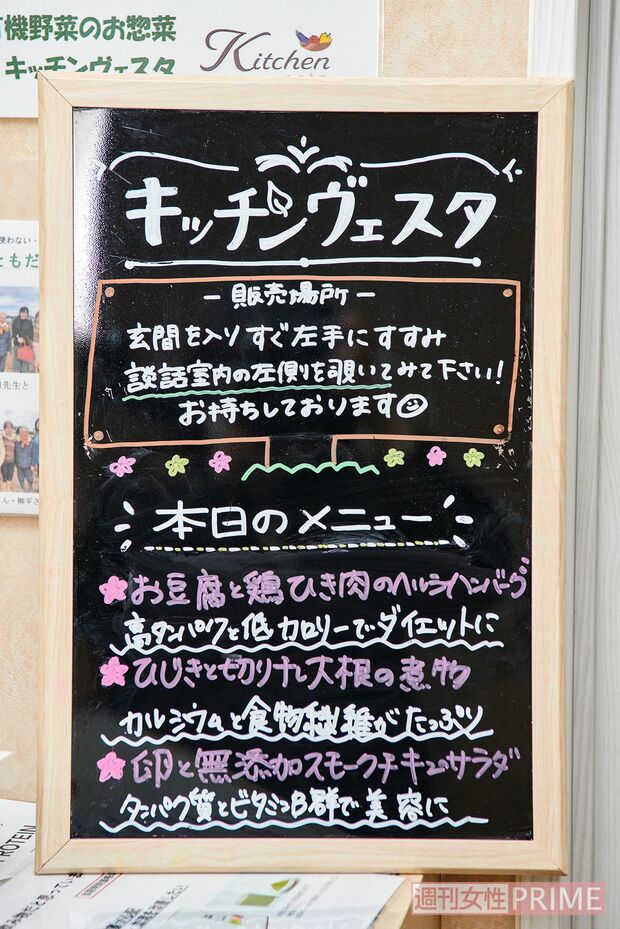 有機野菜のお惣菜
キッチンヴェスタ
Kitchen
キッチンヴェスタ
ー販売場所ー
玄関を入りすぐ左手にすすみ
談話室内の左側を覗いてみて下さい!
お持ちしております
本日のメニュー
お豆腐と鶏ひき肉のヘルシーハンバーグ
高タンパクと低カロリーでダイエットに
ひじきと切り干し大根の煮物
カルシウムと食物繊維がたっぷり
卵と無添加スモークチキンサラダ
タンパク質とビタミンB群で美容に
使わない・
ともだ
先生と
ん・柳平さ
PROTEIN
週刊女性PRIME